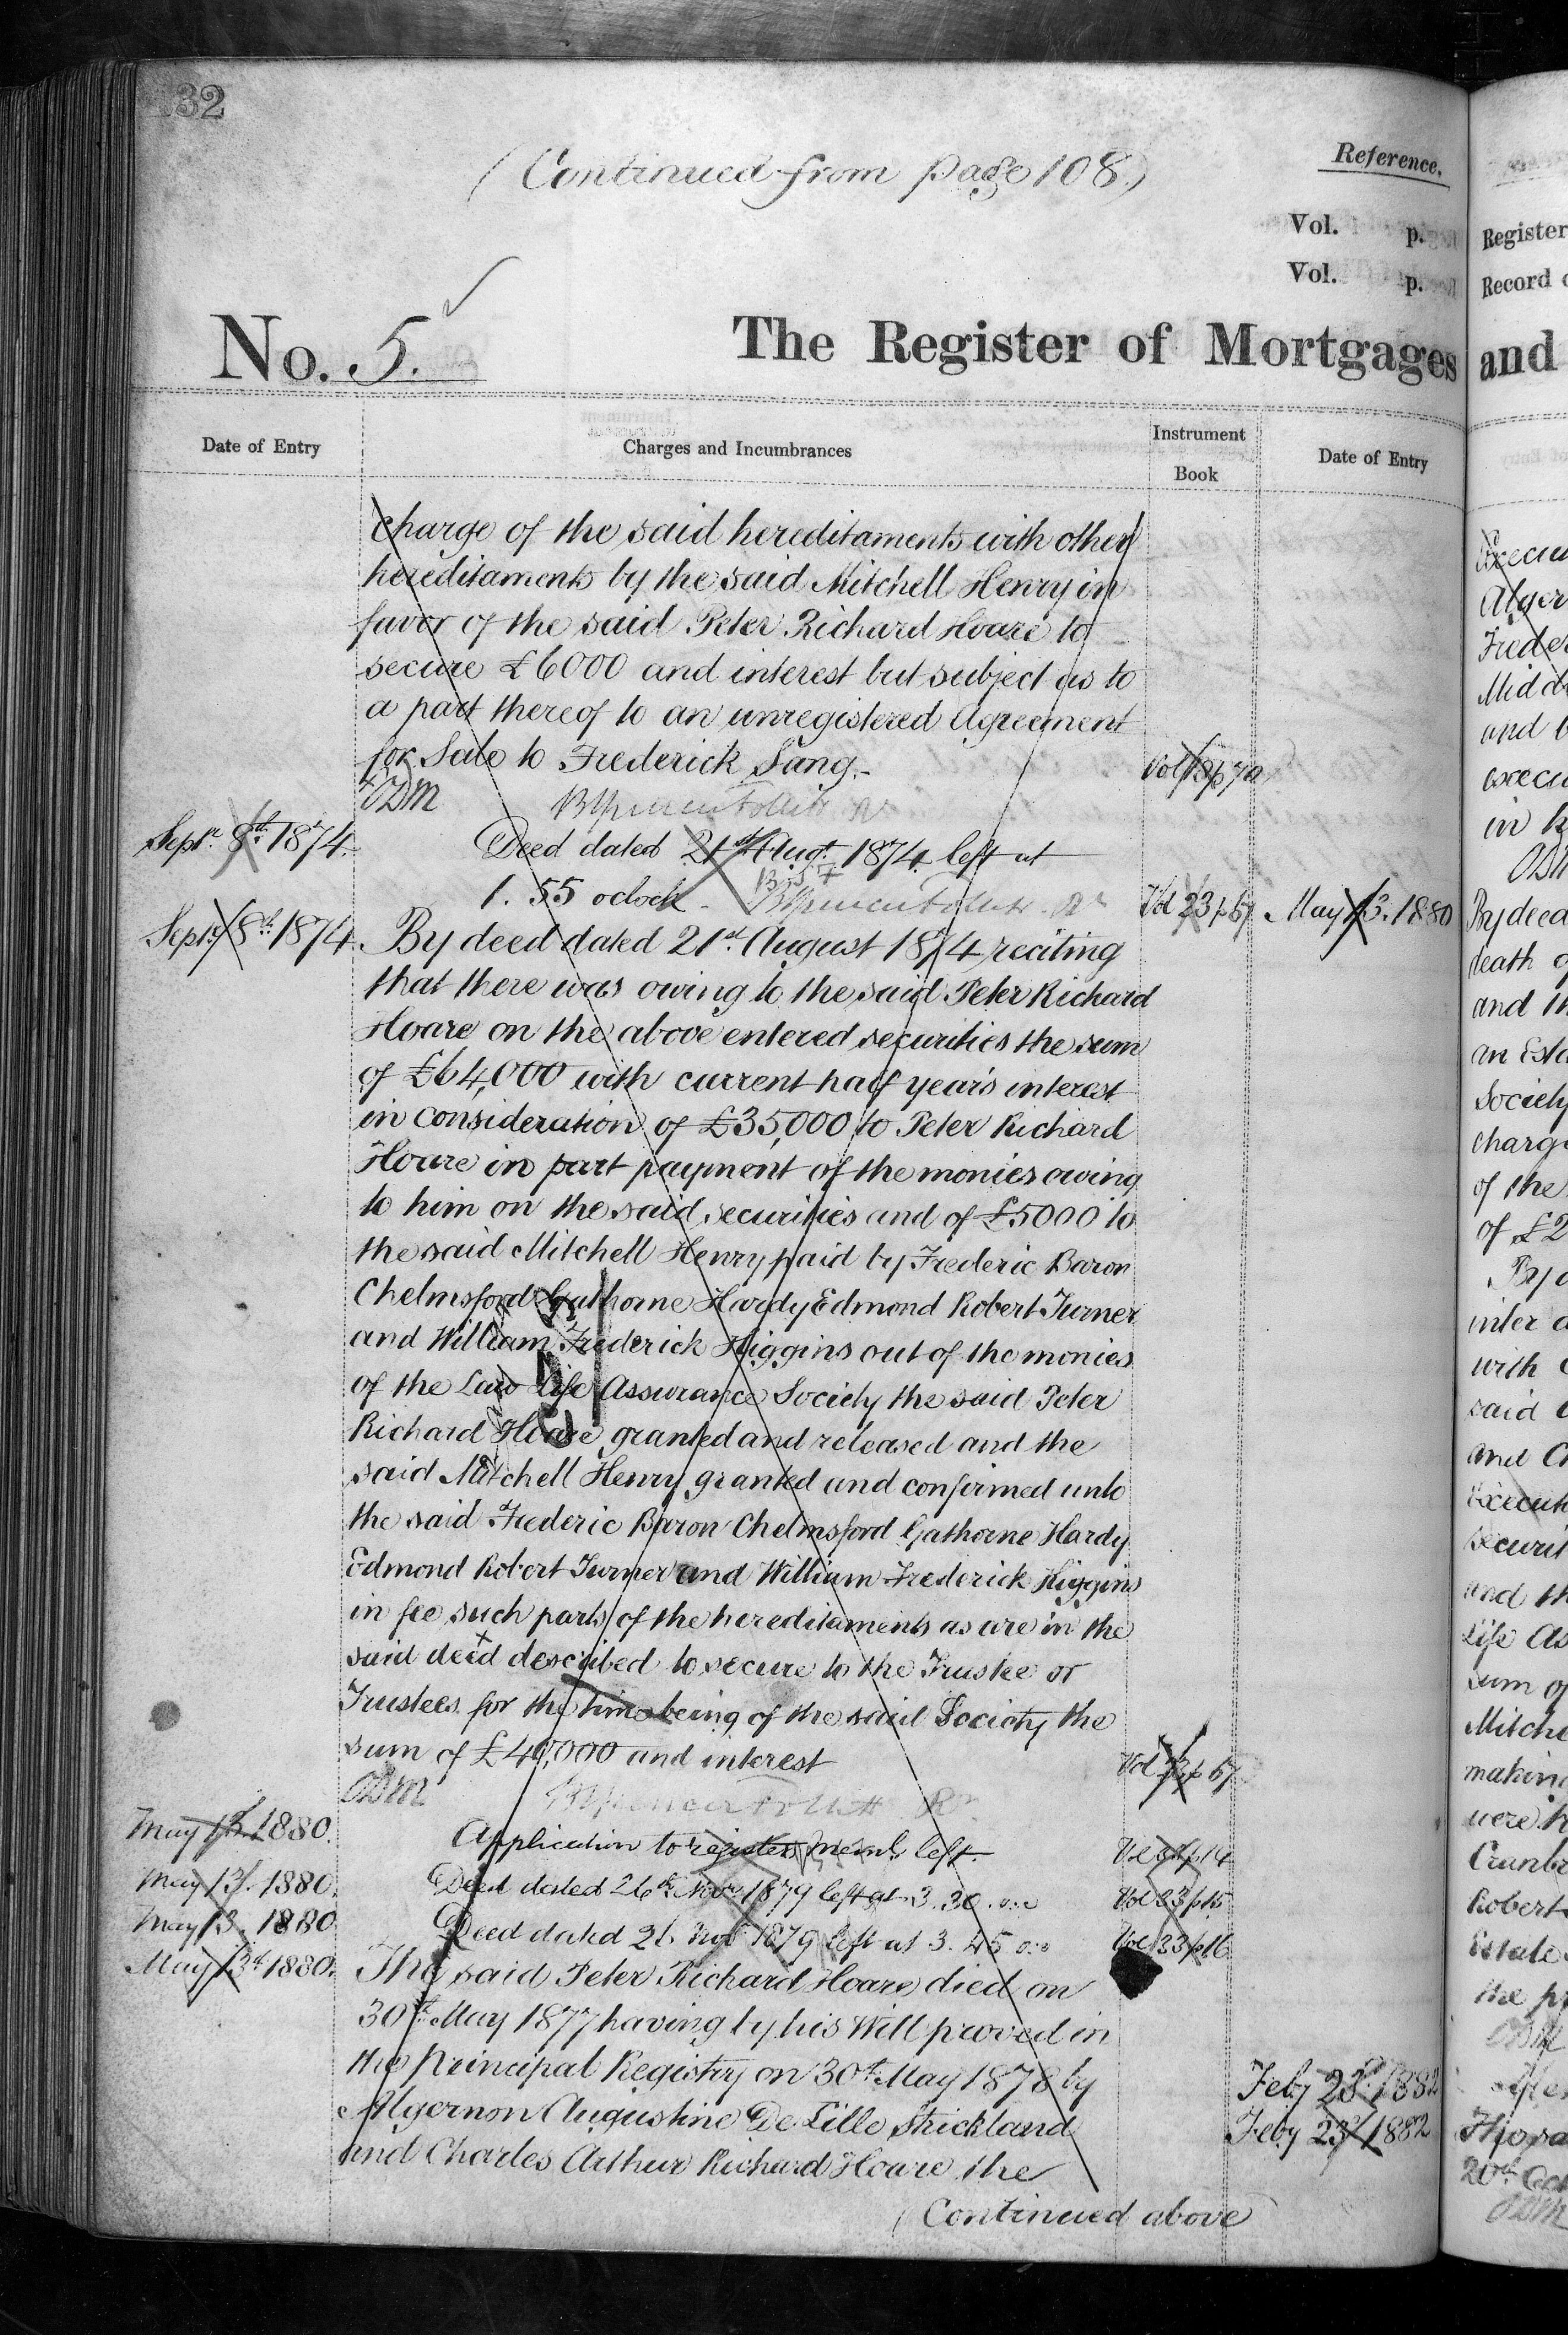 32
(Continued from page 108.)
Reference.
Vol. p.
Vol. p.
No. 5.
The Register of Mortgages
Date of Entry
Charges and Incumbrances
Instrument
Book
Date of Entry
charge of the said hereditaments with other
hereditaments by the said Mitchell Henry in
favor of the said Peter Richard Hoare to
secure £6000 and interest but subject as to
a part thereof to an unregistered Agreement
for Sale to Frederick Sang.-
Vol 18 p 70
ODM
Septr. 8th 1874.
Deed dated 21st Augt. 1874 left at
1. 55 oclock -
Vol 23 p 67
Septr. 8th 1874.
By deed dated 21st August 1874 reciting
that there was owing to the said Peter Richard
Hoare on the above entered securities the sum
of £64,000 with current half years interest
in consideration of £35,000 to Peter Richard
Hoare in part payment of the monies owing
to him on the said securities and of £5000 to
the said Mitchell Henry paid by Frederic Baron
Chelmsford Gathorne Hardy Edmond Robert Turner
and William Frederick Higgins out of the monies
of the Law Life Assurance Society the said Peter
Richard Hoare granted and released and the
said Mitchell Henry granted and confirmed unto
the said Frederic Baron Chelmsford Gathorne Hardy
Edmond Robert Turner and William Frederick Higgins
in fee such parts of the hereditaments as are in the
said deed described to secure to the Trustee or
Trustees for the time being of the said Society the
sum of £40,000 and interest
Vol 23 p 67
ODM
May 13. 1880.
Application to register left.
Vol 33 p 14
May 13. 1880.
Deed dated 26th Novr 1879 left at 3. 30.
Vol 33 p 15
May 13. 1880
Deed dated 26 Novr 1879 left at 3. 45
Vol 33 p 16
May 13th 1880.
The said Peter Richard Hoare died on
30th May 1877 having by his Will proved in
the Principal Registry on 30th May 1878 by
Algernon Augustine De Lille Strickland
and Charles Arthur Richard Hoare the
(Continued above
May 13. 1880
Feby 23d 1882
Feby 23d 1882
Register
Record
and
Frede
and
in
By deed
death
and
an Esta
Society
charge
of the
of £2
inter
with
said
and
and th
Life As
sum of
Mitche
making
were
Robert
Estate
the
20th
ODM